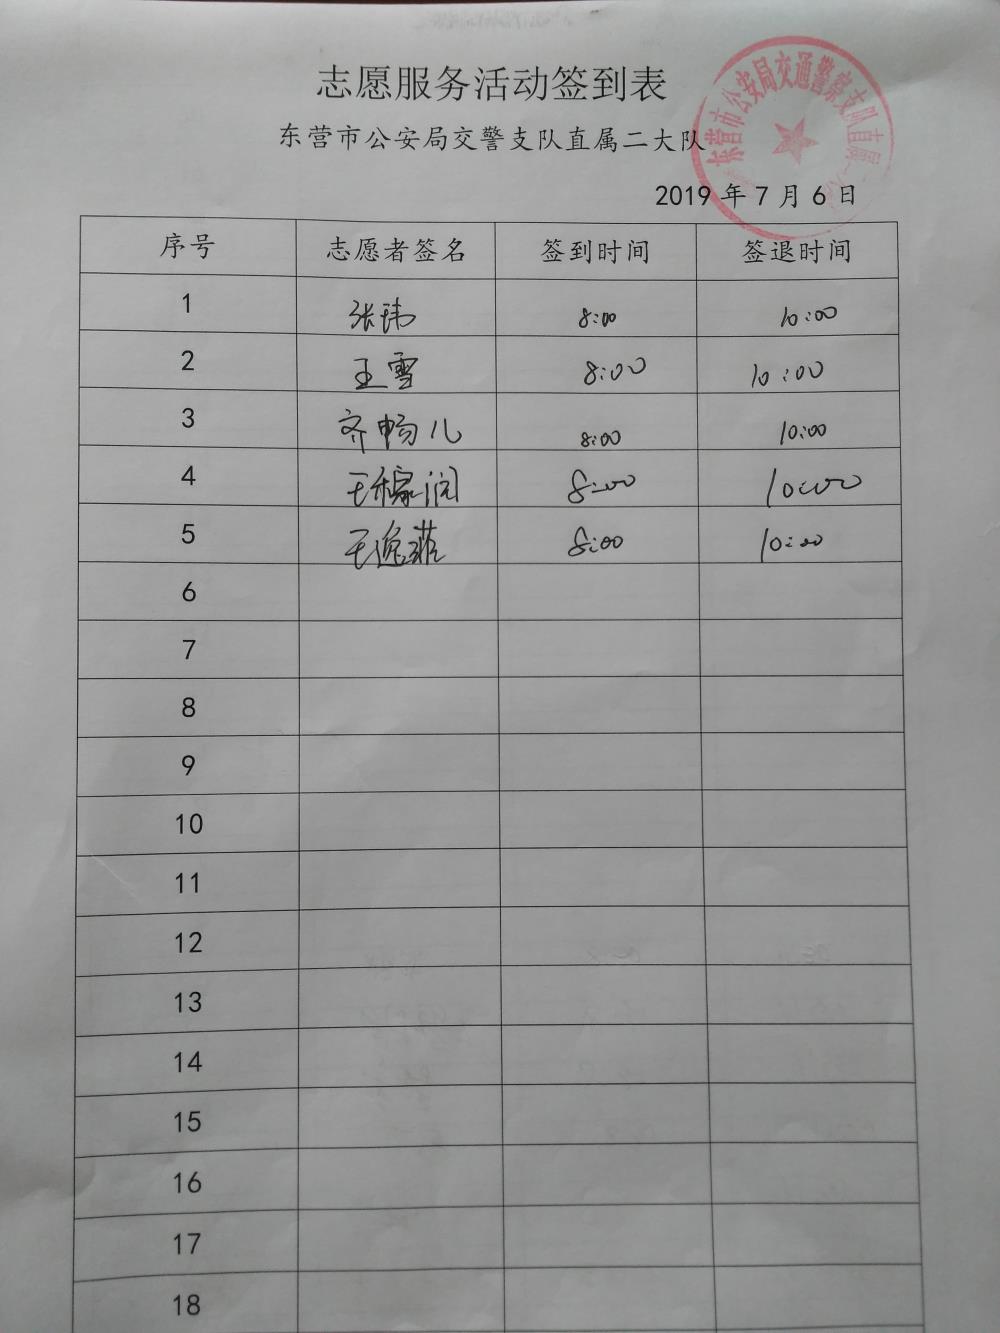 志愿服务活动签到表
东营市公安局交警支队直属二大队
东营市公安局交通警察支队直属
2019 年 7 月 6 日
序号 志愿者签名 签到时间 签退时间
1 张玮 8:00 10:00
2 王雪 8:00 10:00
3 齐畅儿 8:00 10:00
4 王稼润 8:00 10:00
5 王逸菲 8:00 10:00
6
7
8
9
10
11
12
13
14
15
16
17
18